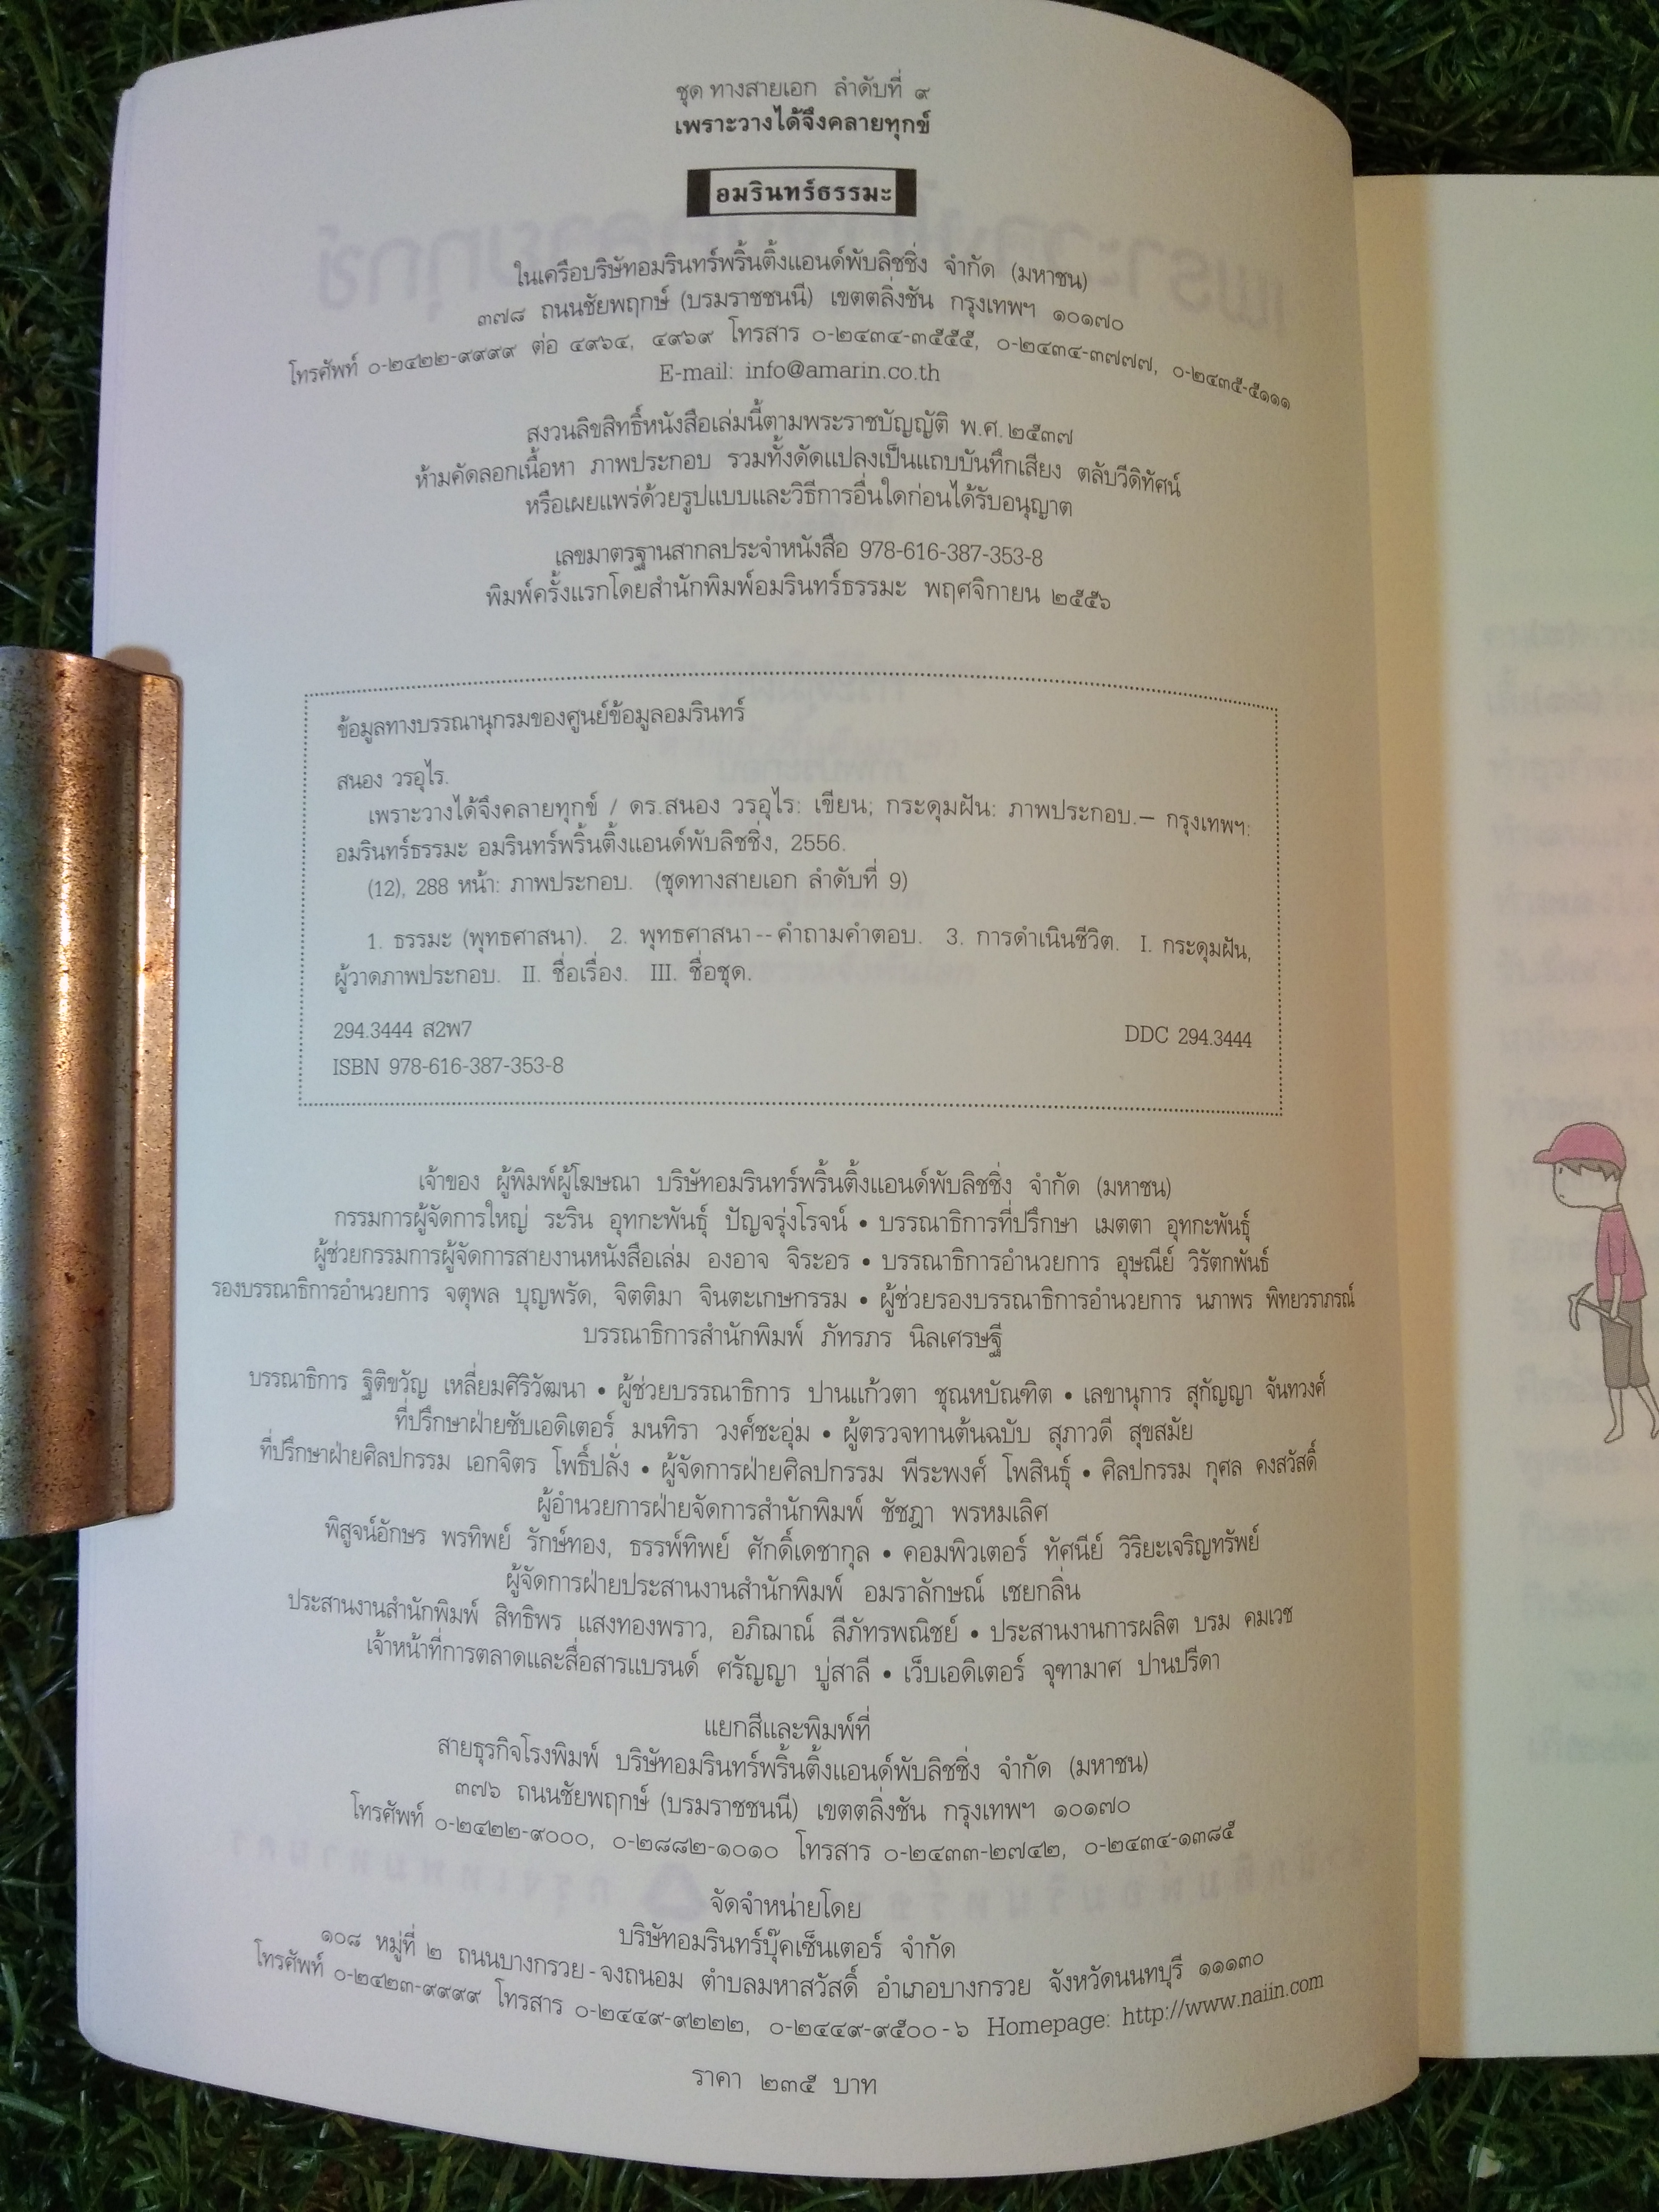 ชุด ทางสายเอก ลำดับที่ ๙
เพราะวางได้จึงคลายทุกข์
อมรินทร์ธรรมะ
ในเครือบริษัทอมรินทร์พริ้นติ้งแอนด์พับลิชชิ่ง จำกัด (มหาชน)
๓๗๘ ถนนชัยพฤกษ์ (บรมราชชนนี) เขตตลิ่งชัน กรุงเทพฯ ๑๐๑๗๐
โทรศัพท์ ๐-๒๔๒๒-๙๙๙๙ ต่อ ๔๙๖๔, ๔๙๖๙ โทรสาร ๐-๒๔๓๔-๓๕๕๕, ๐-๒๔๓๔-๓๗๗๗, ๐-๒๔๓๕-๕๑๑๑
E-mail: info@amarin.co.th
สงวนลิขสิทธิ์หนังสือเล่มนี้ตามพระราชบัญญัติ พ.ศ. ๒๕๓๗
ห้ามคัดลอกเนื้อหา ภาพประกอบ รวมทั้งดัดแปลงเป็นแถบบันทึกเสียง ตลับวีดิทัศน์
หรือเผยแพร่ด้วยรูปแบบและวิธีการอื่นใดก่อนได้รับอนุญาต
เลขมาตรฐานสากลประจำหนังสือ 978-616-387-353-8
พิมพ์ครั้งแรกโดยสำนักพิมพ์อมรินทร์ธรรมะ พฤศจิกายน ๒๕๕๖
ข้อมูลทางบรรณานุกรมของศูนย์ข้อมูลอมรินทร์
สนอง วรอุไร.
เพราะวางได้จึงคลายทุกข์ / ดร.สนอง วรอุไร: เขียน; กระดุมฝัน: ภาพประกอบ.— กรุงเทพฯ:
อมรินทร์ธรรมะ อมรินทร์พริ้นติ้งแอนด์พับลิชชิ่ง, 2556.
(12), 288 หน้า: ภาพประกอบ. (ชุดทางสายเอก ลำดับที่ 9)
1. ธรรมะ (พุทธศาสนา). 2. พุทธศาสนา--คำถามคำตอบ. 3. การดำเนินชีวิต. I. กระดุมฝัน,
ผู้วาดภาพประกอบ. II. ชื่อเรื่อง. III. ชื่อชุด.
294.3444 ส2พ7 DDC 294.3444
ISBN 978-616-387-353-8
เจ้าของ ผู้พิมพ์ผู้โฆษณา บริษัทอมรินทร์พริ้นติ้งแอนด์พับลิชชิ่ง จำกัด (มหาชน)
กรรมการผู้จัดการใหญ่ ระริน อุทกะพันธุ์ ปัญจรุ่งโรจน์ • บรรณาธิการที่ปรึกษา เมตตา อุทกะพันธุ์
ผู้ช่วยกรรมการผู้จัดการสายงานหนังสือเล่ม องอาจ จิระอร • บรรณาธิการอำนวยการ อุษณีย์ วิรัตกพันธ์
รองบรรณาธิการอำนวยการ จตุพล บุญพรัด, จิตติมา จินตะเกษกรรม • ผู้ช่วยรองบรรณาธิการอำนวยการ นภาพร พิทยวราภรณ์
บรรณาธิการสำนักพิมพ์ ภัทรภร นิลเศรษฐี
บรรณาธิการ ฐิติขวัญ เหลี่ยมศิริวัฒนา • ผู้ช่วยบรรณาธิการ ปานแก้วตา ชุณหบัณฑิต • เลขานุการ สุกัญญา จันทวงศ์
ที่ปรึกษาฝ่ายซับเอดิเตอร์ มนทิรา วงศ์ชะอุ่ม • ผู้ตรวจทานต้นฉบับ สุภาวดี สุขสมัย
ที่ปรึกษาฝ่ายศิลปกรรม เอกจิตร โพธิ์ปลั่ง • ผู้จัดการฝ่ายศิลปกรรม พีระพงศ์ โพสินธุ์ • ศิลปกรรม กุศล คงสวัสดิ์
ผู้อำนวยการฝ่ายจัดการสำนักพิมพ์ ชัชฎา พรหมเลิศ
พิสูจน์อักษร พรทิพย์ รักษ์ทอง, ธรรพ์ทิพย์ ศักดิ์เดชากุล • คอมพิวเตอร์ ทัศนีย์ วิริยะเจริญทรัพย์
ผู้จัดการฝ่ายประสานงานสำนักพิมพ์ อมราลักษณ์ เชยกลิ่น
ประสานงานสำนักพิมพ์ สิทธิพร แสงทองพราว, อภิฌาณ์ ลีภัทรพณิชย์ • ประสานงานการผลิต บรม คมเวช
เจ้าหน้าที่การตลาดและสื่อสารแบรนด์ ศรัญญา บู่สาลี • เว็บเอดิเตอร์ จุฑามาศ ปานปรีดา
แยกสีและพิมพ์ที่
สายธุรกิจโรงพิมพ์ บริษัทอมรินทร์พริ้นติ้งแอนด์พับลิชชิ่ง จำกัด (มหาชน)
๓๗๖ ถนนชัยพฤกษ์ (บรมราชชนนี) เขตตลิ่งชัน กรุงเทพฯ ๑๐๑๗๐
โทรศัพท์ ๐-๒๔๒๒-๙๐๐๐, ๐-๒๘๘๒-๑๐๑๐ โทรสาร ๐-๒๔๓๓-๒๗๔๒, ๐-๒๔๓๔-๑๓๘๕
จัดจำหน่ายโดย
บริษัทอมรินทร์บุ๊คเซ็นเตอร์ จำกัด
๑๐๘ หมู่ที่ ๒ ถนนบางกรวย-จงถนอม ตำบลมหาสวัสดิ์ อำเภอบางกรวย จังหวัดนนทบุรี ๑๑๑๓๐
โทรศัพท์ ๐-๒๔๒๓-๙๙๙๙ โทรสาร ๐-๒๔๔๙-๙๒๒๒, ๐-๒๔๔๙-๙๕๐๐-๖ Homepage: http://www.naiin.com
ราคา ๒๓๕ บาท